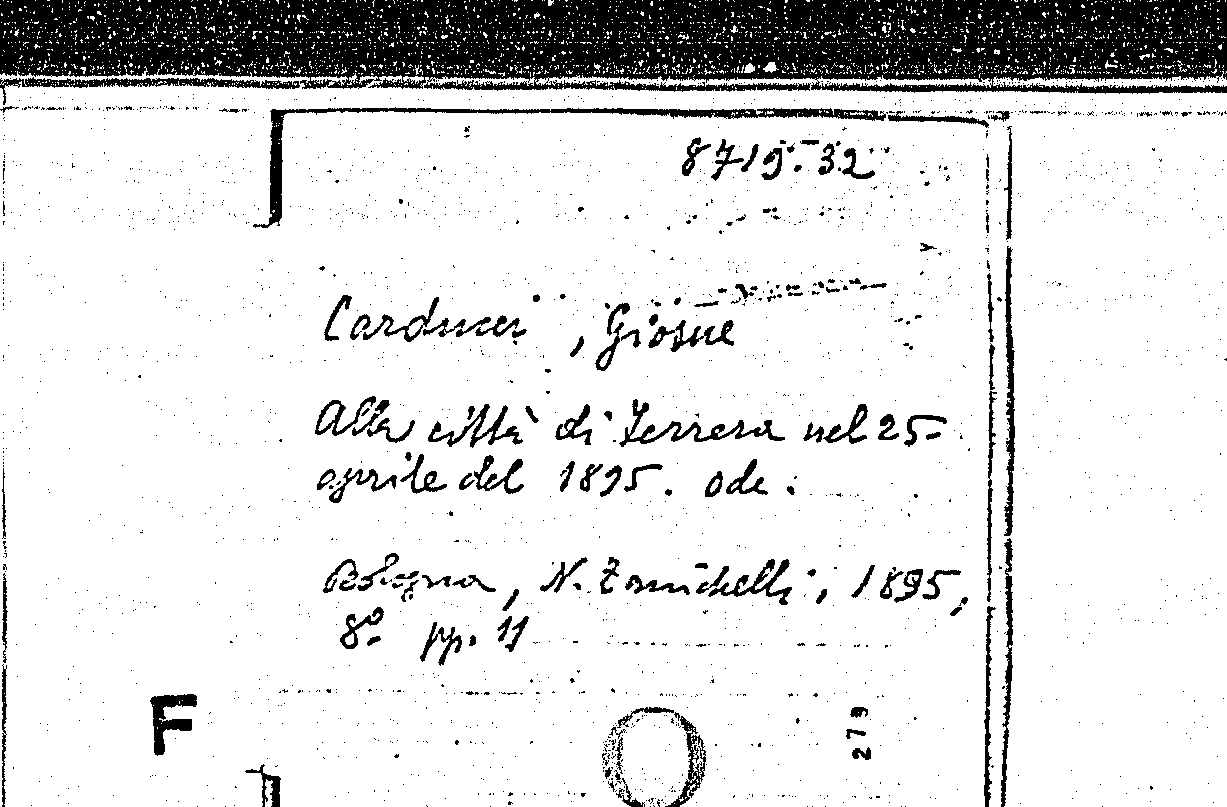 8719.32
Carducci, Giosue
Alla città di Ferrara nel 25
aprile del 1895. Ode.
Bologna, N. Zanichelli, 1895,
8º pp. 11
F
279